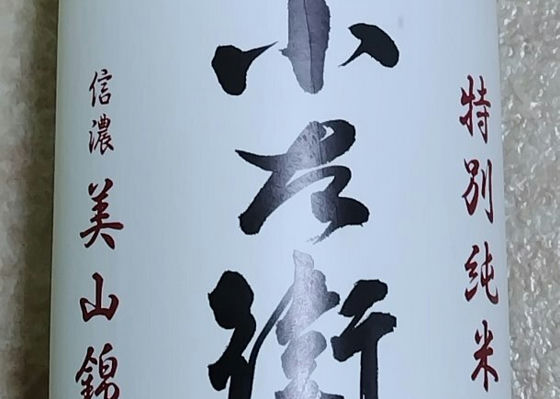 特別純米
小左衛
信濃 美山錦